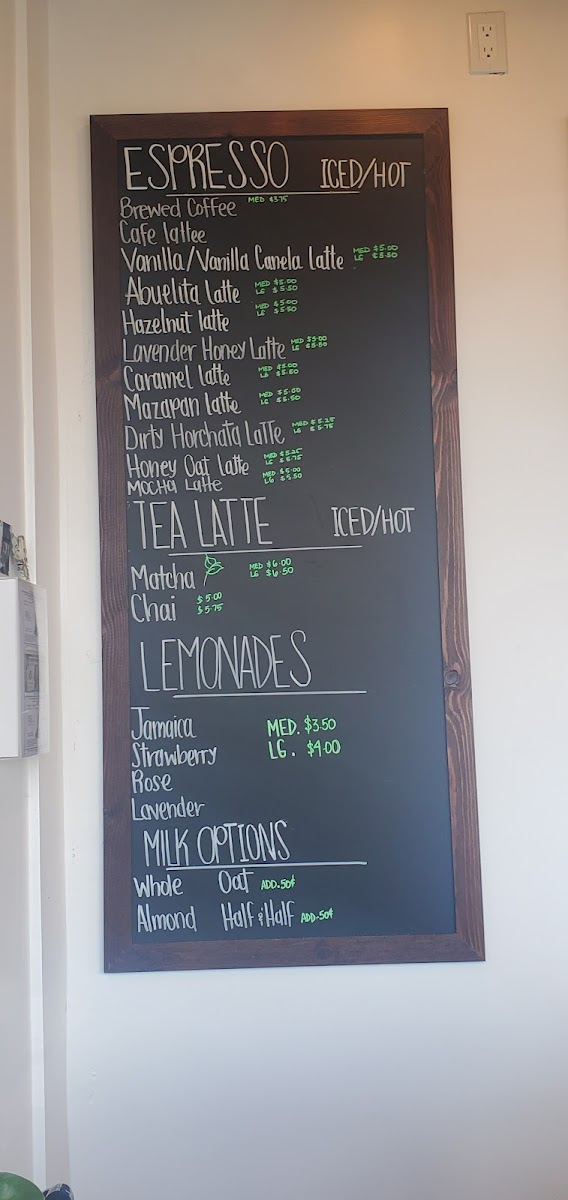 ESPRESSO ICED/HOT
Brewed Coffee MED $3.75
Cafe lattee
Vanilla/Vanilla Canela Latte MED $5.00
LG $5.50
Abuelita latte MED $5.00
LG $5.50
Hazelnut latte MED $5.00
LG $5.50
Lavender Honey Latte MED $5.00
LG $5.50
Caramel latte MED $5.00
LG $5.50
Mazapan latte MED $5.00
LG $5.50
Dirty Horchata LaTTe MED $5.25
LG $5.75
Honey Oat latte MED $5.25
LG $5.75
MOCHA Latte MED $5.00
LG $5.50
TEA LATTE ICED/HOT
Matcha MED $6.00
LG $6.50
Chai $5.00
$5.75
LEMONADES
Jamaica MED. $3.50
Strawberry LG. $4.00
Rose
Lavender
MILK OPTIONS
Whole Oat ADD .50¢
Almond Half & Half ADD .50¢